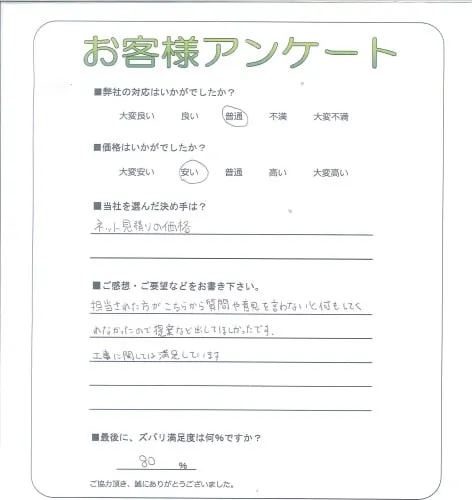 お客様アンケート
■弊社の対応はいかがでしたか？
大変良い 良い 普通 不満 大変不満
■価格はいかがでしたか？
大変安い 安い 普通 高い 大変高い
■当社を選んだ決め手は？
ネット見積りの価格
■ご感想・ご要望などをお書き下さい。
担当された方がこちらから質問や意見を言わないと何もしてく
れなかったので提案など出してほしかったです。
工事に関しては満足しています
■最後に、ズバリ満足度は何%ですか？
80 %
ご協力頂き、誠にありがとうございました。